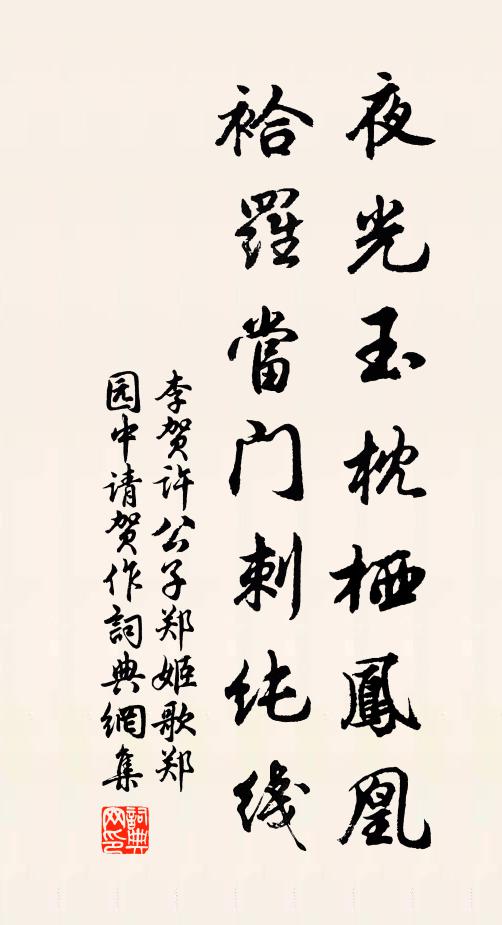 夜光玉枕栖鳳凰
袷羅當门刺纯线
李贺许公子郑姬歌郑
园中请贺作詞典網集